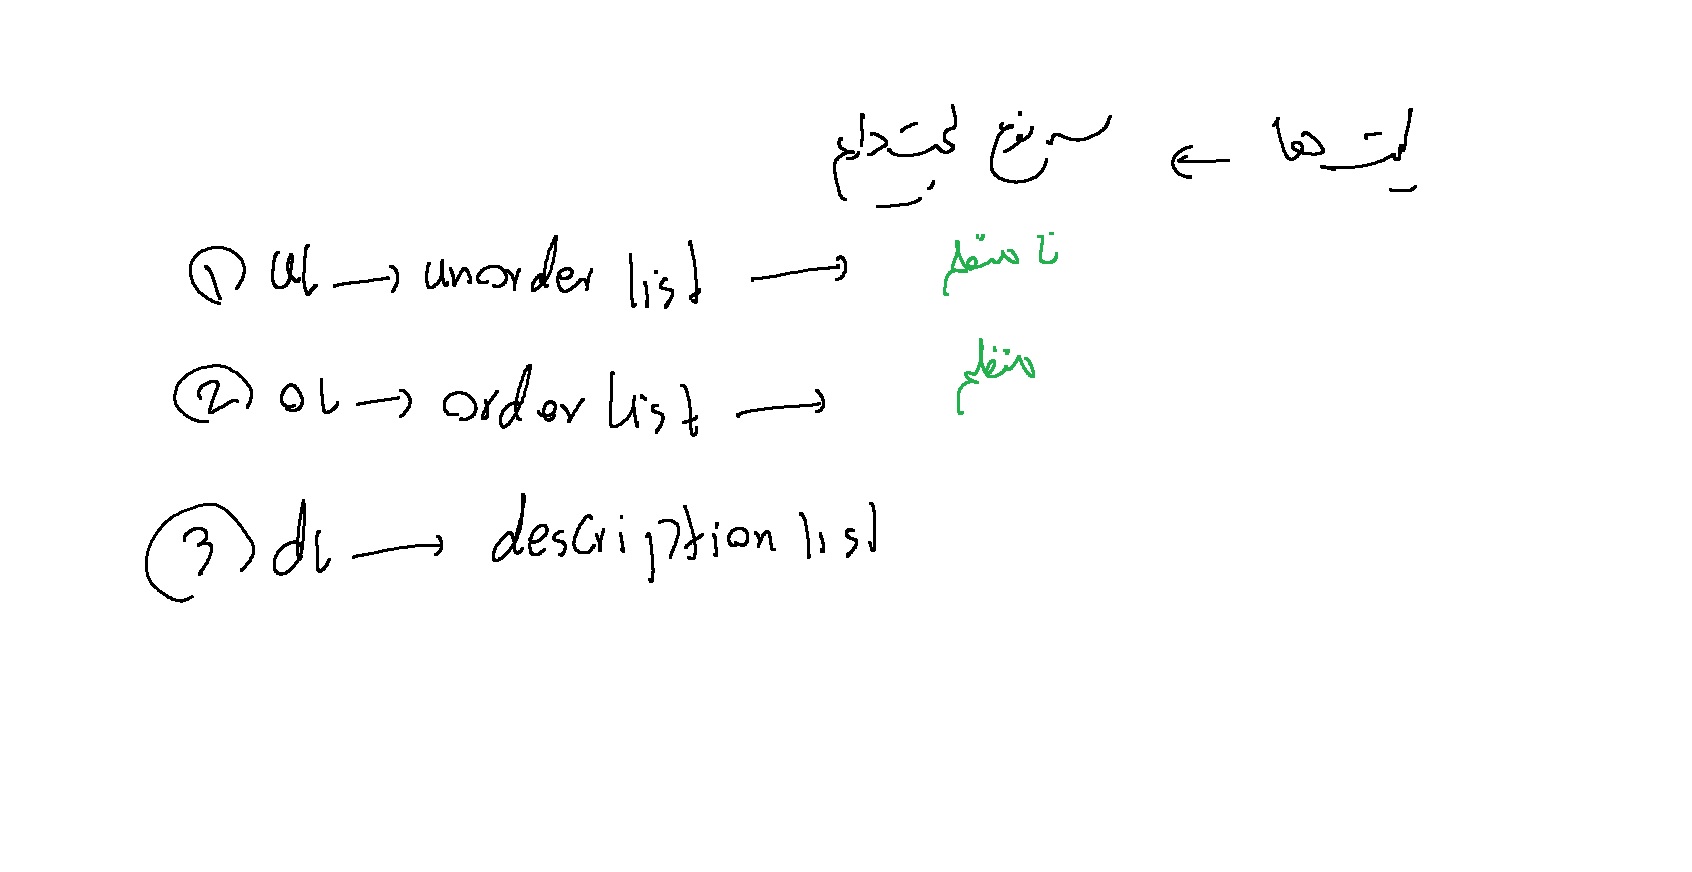 لیست ها ← سه نوع لیست داریم
① ul → unorder list → نا منظم
② ol → order list → منظم
③ dl → description list